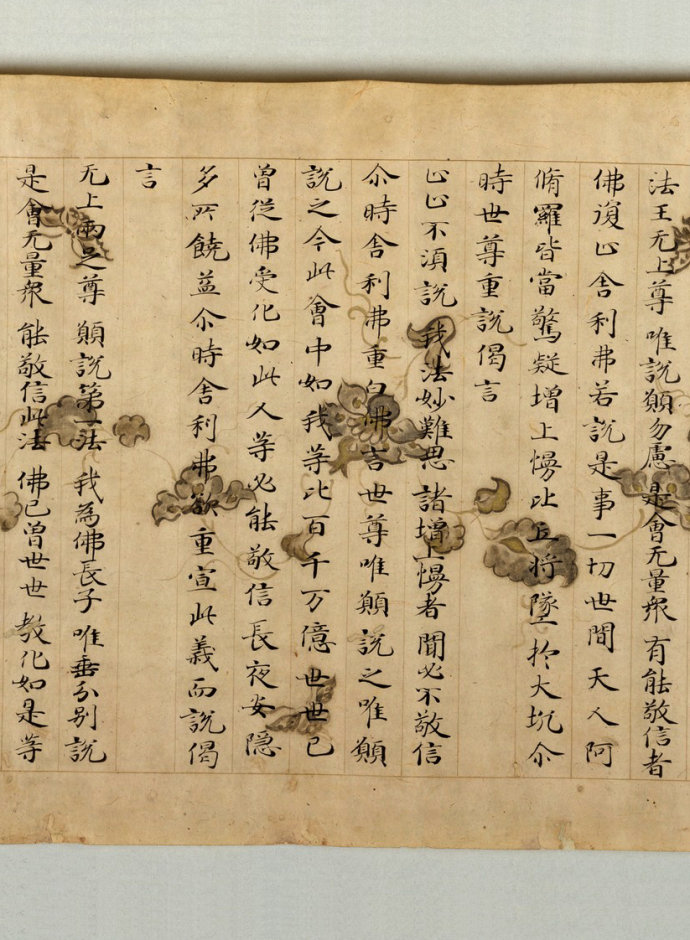 法王无上尊 唯說願勿慮 是會无量衆 有能敬信者
佛復止舍利弗若說是事一切世間天人阿
脩羅皆當驚疑增上慢比丘將墜於大坑尒
時世尊重說偈言
止止不湏說 我法妙難思 諸增上慢者 聞必不敬信
尒時舍利弗重白佛言世尊唯願說之唯願
說之今此會中如我等比百千万億世世已
曽從佛受化如此人等必能敬信長夜安隱
多所饒益尒時舍利弗欲重宣此義而說偈
言
无上兩足尊 願說第一法 我為佛長子 唯垂分別說
是會无量衆 能敬信此法 佛已曽世世 教化如是等